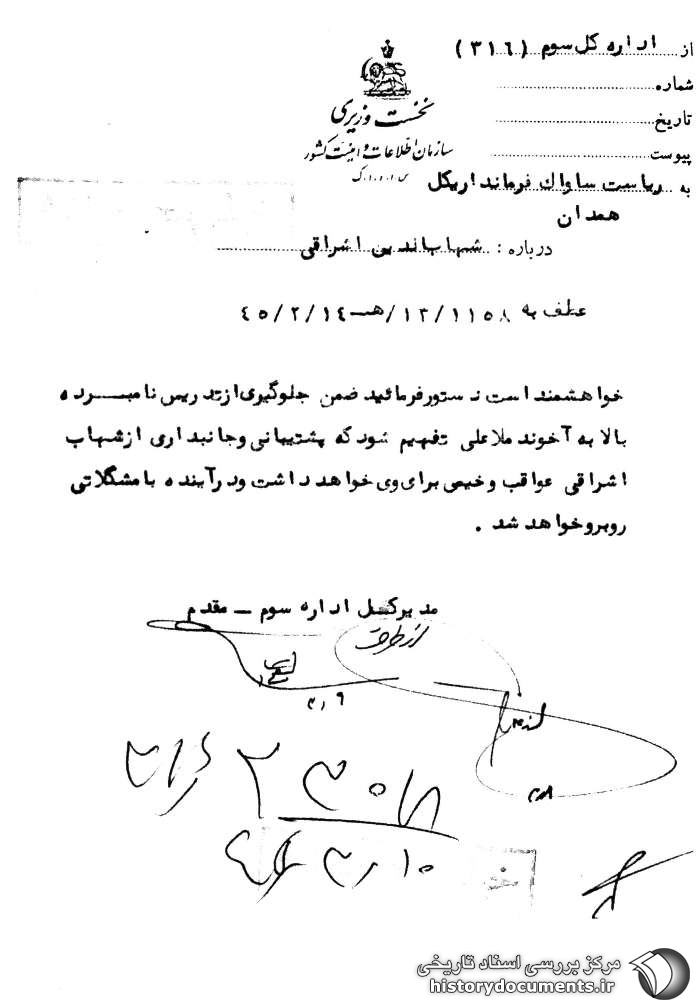 از اداره کل سوم (۳۱۶)
شماره
تاریخ
پیوست
نخست وزیری
سازمان اطلاعات و امنیت کشور
س.ا.و.ا.ک
به ریاست ساواک فرمانداریکل
همدان
درباره : شهاب‌الدین اشراقی
عطف به ۱۳/۱۱۵۸/هـ‍ـ ۴۵/۲/۱۴
خواهشمند است دستور فرمائید ضمن جلوگیری از تدریس نامبرده
بالا به آخوند ملاعلی تفهیم شود که پشتیبانی و جانبداری از شهاب
اشراقی عواقب وخیمی برای وی خواهد داشت و در آینده با مشگلاتی
روبرو خواهد شد .
مدیرکل اداره سوم ــ مقدم
از طرف
۳۱۶
مرکز بررسی اسناد تاریخی
historydocuments.ir